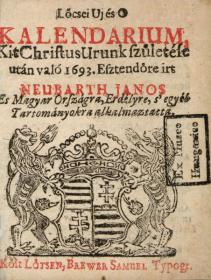 Lőcsei Uj és O
KALENDARIUM,
Kit Christus Urunk születése
után való 1693. Esztendőre irt
NEUBARTH JANOS
Es Magyar Országra, Erdélyre, s' egyéb
Tartományokra alkalmaztatta
Ex Museo
Költ LŐTSEN, BREWER SAMUEL Typogr.